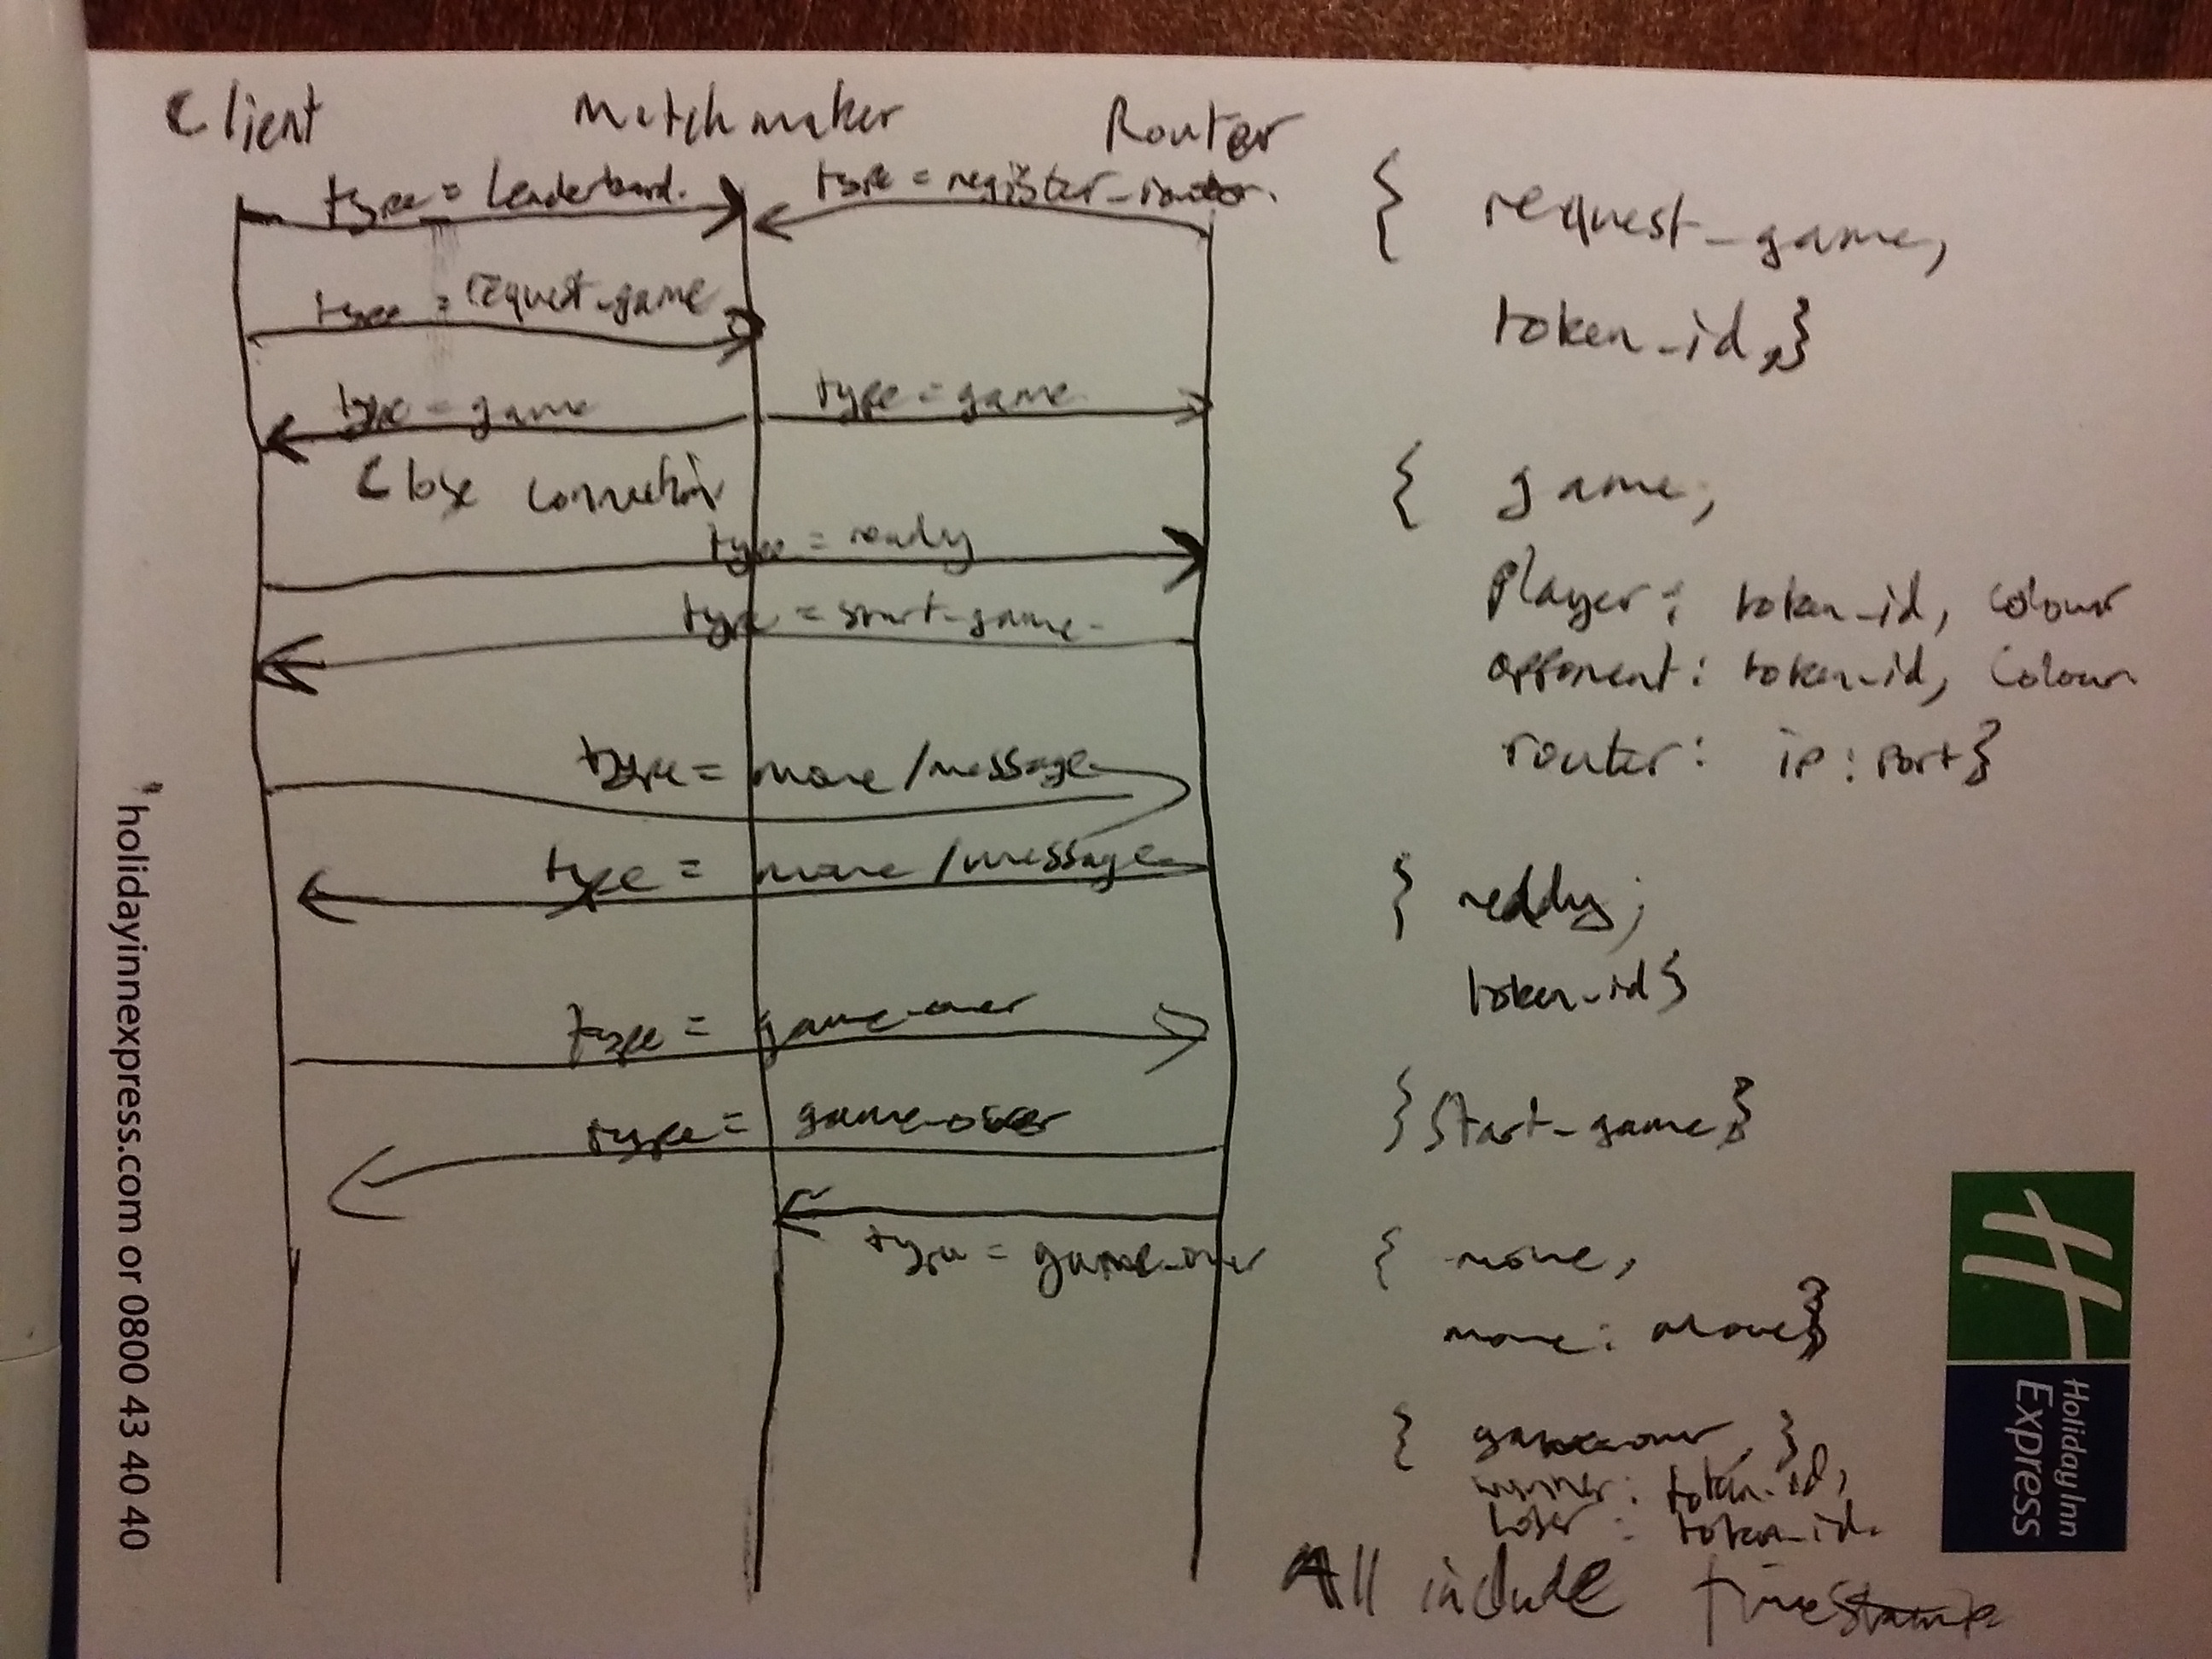 Client matchmaker Router
type = leaderboard. type = register_router.
type = request_game
type = game type = game
Close connection
type = ready
type = start-game
type = move/message
type = move/message
type = game-over
type = game-over
type = game-over
{ request_game,
token_id}
{ game,
player: token_id, colour
opponent: token_id, colour
router: ip:port}
{ ready,
token_id}
{ start_game}
{ move,
move: move}
{ gameover
winner: token_id,
loser: token_id}
All include timestamp
holidayinnexpress.com or 0800 43 40 40
Holiday Inn
Express